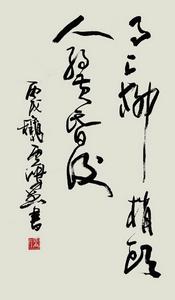 月上柳梢頭
人約黃昏後
丙戌 書